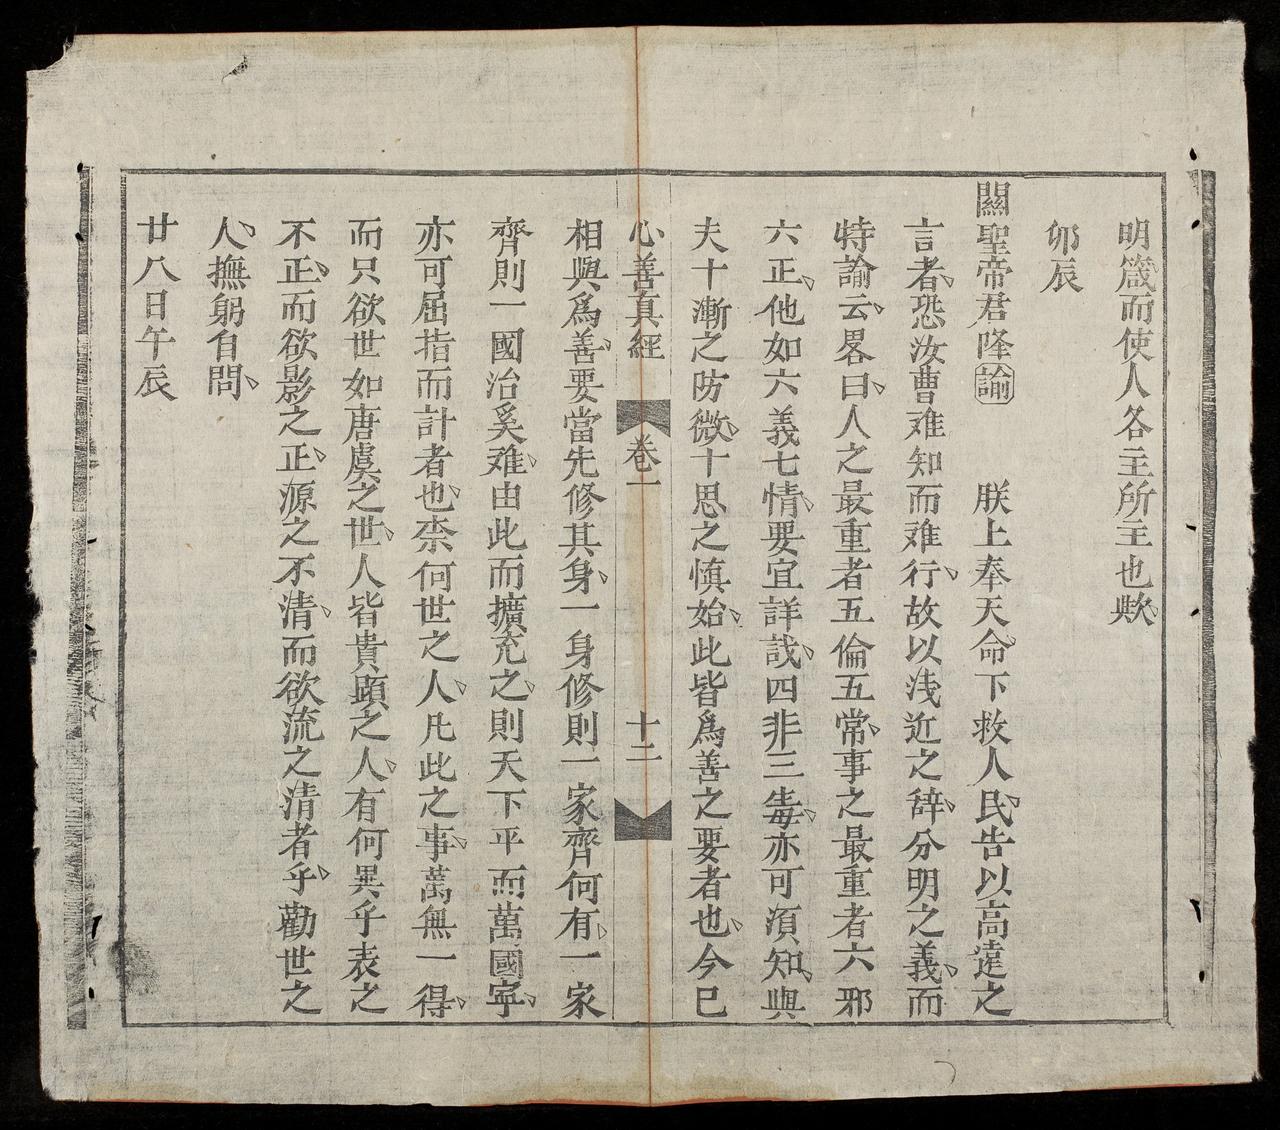 明箴而使人各主所主也歟
卯辰
關聖帝君降諭 朕上奉天命下救人民告以高遠之
言者恐汝曹难知而难行故以浅近之辞分明之義而
特諭云畧曰人之最重者五倫五常事之最重者六邪
六正他如六義七情要宜詳戝四非三毒亦可須知與
夫十漸之防微十思之慎始此皆爲善之要者也今已
心善真經 卷一 十二
相與爲善要當先修其身一身修則一家齊何有一家
齊則一國治奚难由此而擴充之則天下平而萬國寧
亦可屈指而計者也柰何世之人凡此之事萬無一得
而只欲世如唐虞之世人皆貴顕之人有何異乎表之
不正而欲影之正源之不清而欲流之清者乎勸世之
人撫躬自問
廿八日午辰